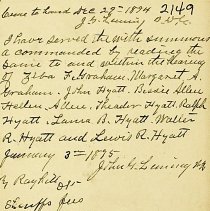 Came to hand Dec 29th 1894 2149
J. G. Leming
I have served the with summons
a commanded by reading the
same to and within the hearing
of Zeba F. Graham, Margaret A.
Graham, John Hyatt, Bessie Allen
Hellen Allen, Theader Hyatt, Ralph
Hyatt, Laura B. Hyatt, Walter
R. Hyatt and Lewis R. Hyatt
January 3rd 1895
John G. Leming
By Ray
Sheriffs fees